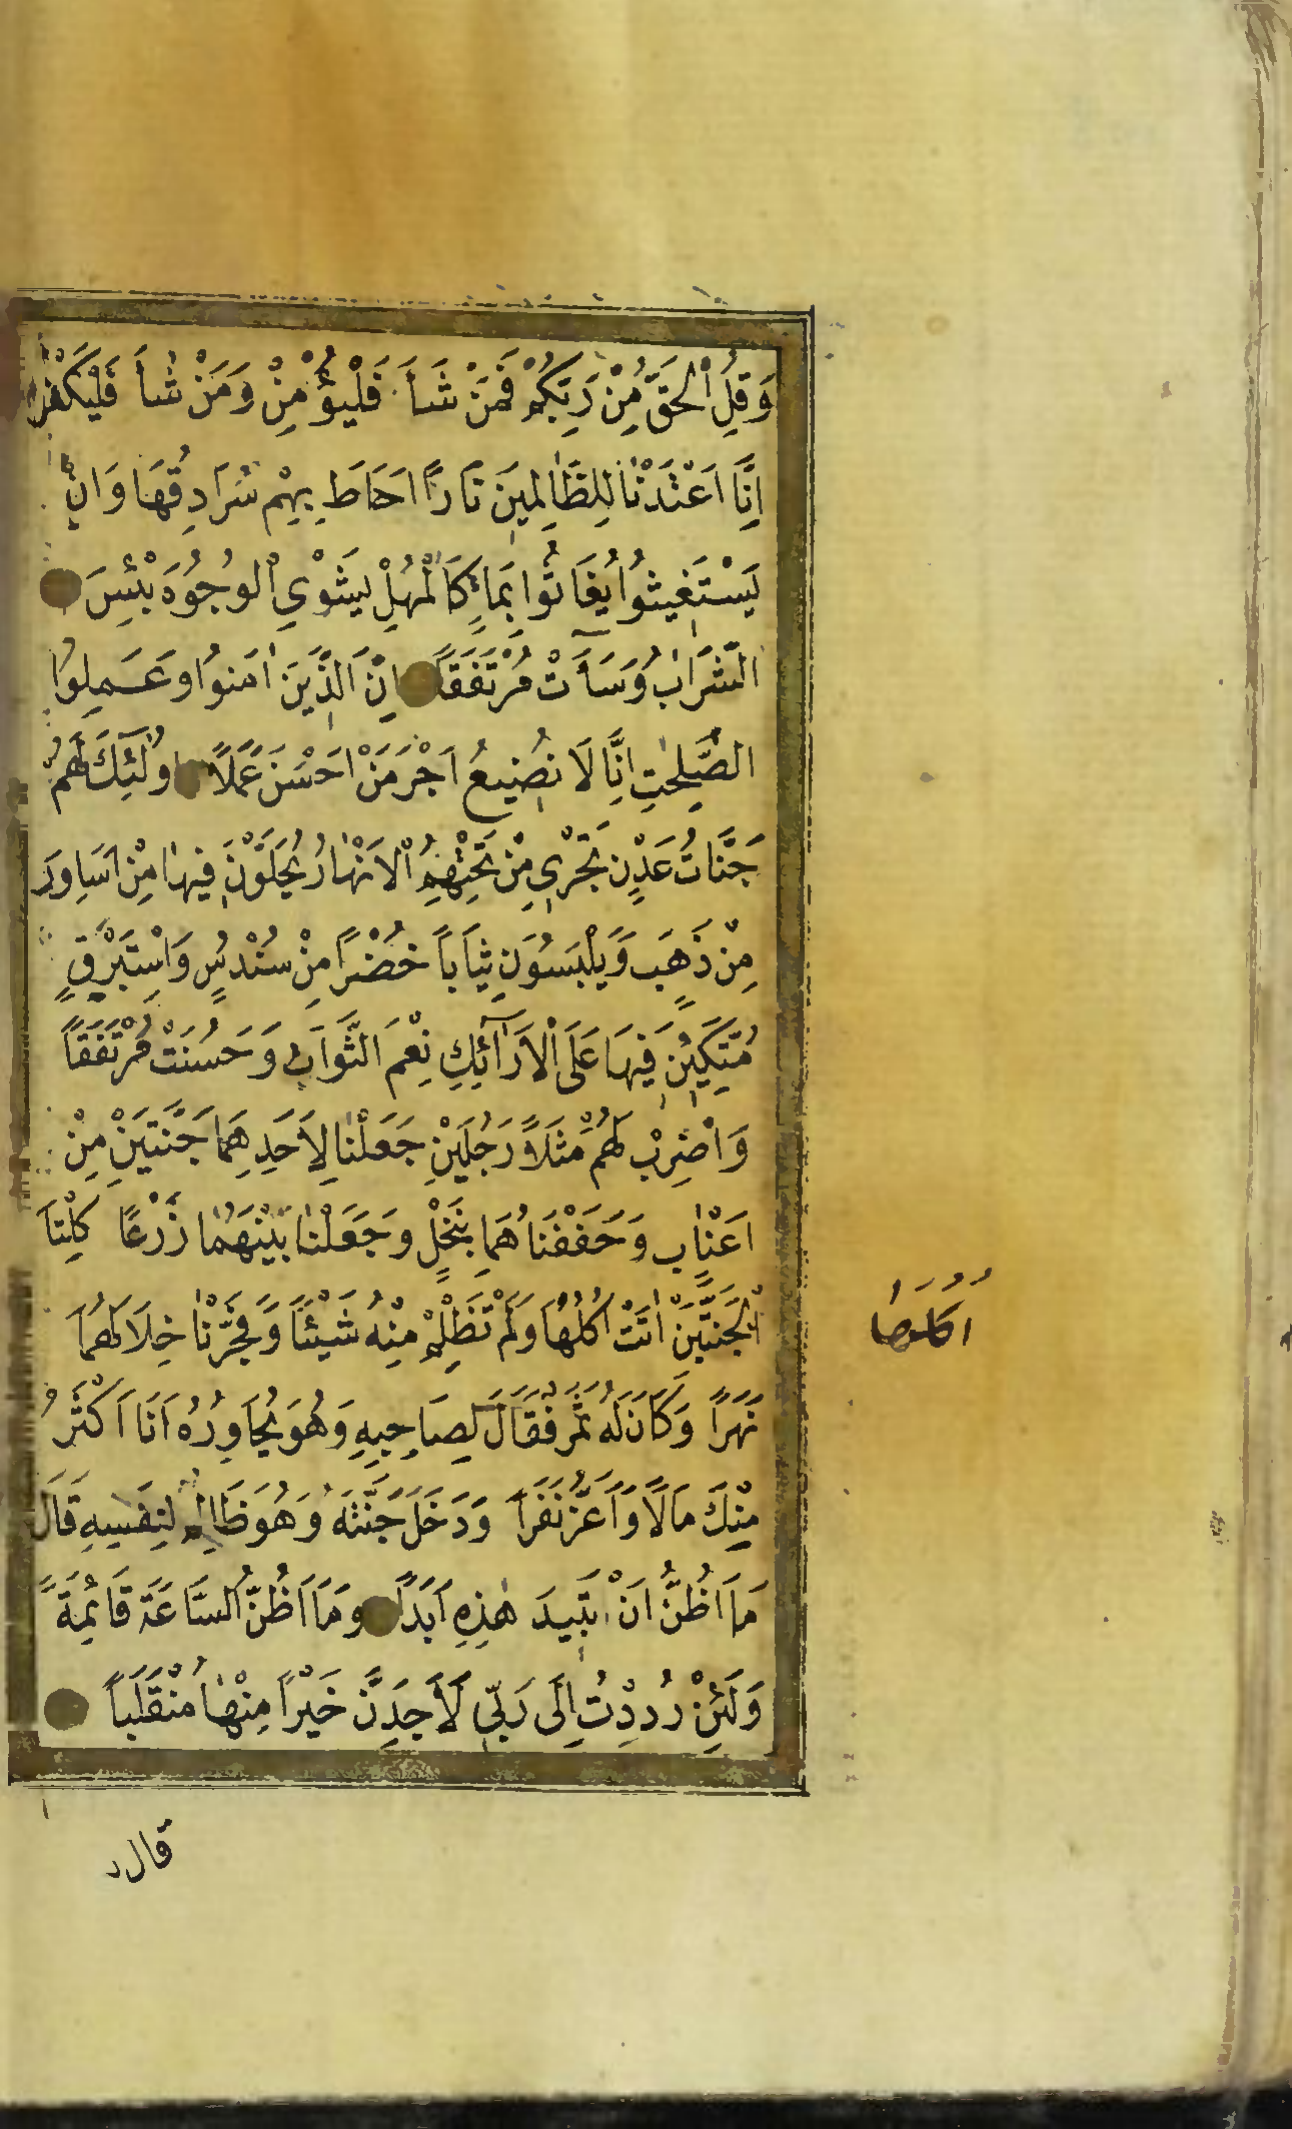 وَقُلِ الْحَقُّ مِنْ رَبِّكُمْ فَمَنْ شَأَ فَلْيُؤْمِنْ وَمَنْ شَأَ فَلْيَكْفُرْ
اِنَّا اَعْتَدْنَا لِلظَّالِمِينَ نَارًا اَحَاطَ بِهِمْ سُرَادِقُهَا وَاِنْ
يَسْتَغِيثُوا يُغَاثُوا بِمَاءٍ كَالْمُهْلِ يَشْوِي الْوُجُوهَ بِئْسَ
الشَّرَابُ وَسَأَتْ مُرْتَفَقًا اِنَّ الَّذِينَ اٰمَنُوا وَعَمِلُوا
الصّٰلِحٰتِ اِنَّا لَا نُضِيعُ اَجْرَ مَنْ اَحْسَنَ عَمَلًا اُولٰئِكَ لَهُمْ
جَنَّاتُ عَدْنٍ تَجْرِي مِنْ تَحْتِهِمُ الْاَنْهَارُ يُحَلَّوْنَ فِيهَا مِنْ اَسَاوِرَ
مِنْ ذَهَبٍ وَيَلْبَسُونَ ثِيَابًا خُضْرًا مِنْ سُنْدُسٍ وَاِسْتَبْرَقٍ
مُتَّكِئِينَ فِيهَا عَلَى الْاَرَآئِكِ نِعْمَ الثَّوَابُ وَحَسُنَتْ مُرْتَفَقًا
وَاضْرِبْ لَهُمْ مَثَلًا رَجُلَيْنِ جَعَلْنَا لِاَحَدِهِمَا جَنَّتَيْنِ مِنْ
اَعْنَابٍ وَحَفَفْنَاهُمَا بِنَخْلٍ وَجَعَلْنَا بَيْنَهُمَا زَرْعًا كِلْتَا
الْجَنَّتَيْنِ اٰتَتْ اُكُلَهَا وَلَمْ تَظْلِمْ مِنْهُ شَيْئًا وَفَجَّرْنَا خِلَالَهُمَا
نَهَرًا وَكَانَ لَهُ ثَمَرٌ فَقَالَ لِصَاحِبِهِ وَهُوَ يُحَاوِرُهُ اَنَا اَكْثَرُ
مِنْكَ مَالًا وَاَعَزُّ نَفَرًا وَدَخَلَ جَنَّتَهُ وَهُوَ ظَالِمٌ لِنَفْسِهِ قَالَ
مَا اَظُنُّ اَنْ تَبِيدَ هٰذِهِ اَبَدًا وَمَا اَظُنُّ السَّاعَةَ قَائِمَةً
وَلَئِنْ رُدِدْتُ اِلَى رَبِّي لَاَجِدَنَّ خَيْرًا مِنْهَا مُنْقَلَبًا
اُكُلُهَا
قال